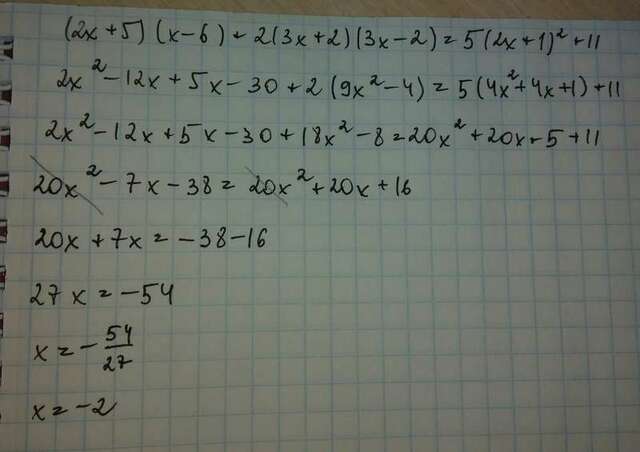 (2x+5)(x-6)+2(3x+2)(3x-2)=5(2x+1)²+11
2x²-12x+5x-30+2(9x²-4)=5(4x²+4x+1)+11
2x²-12x+5x-30+18x²-8=20x²+20x+5+11
20x²-7x-38=20x²+20x+16
20x+7x=-38-16
27x=-54
x=-54/27
x=-2